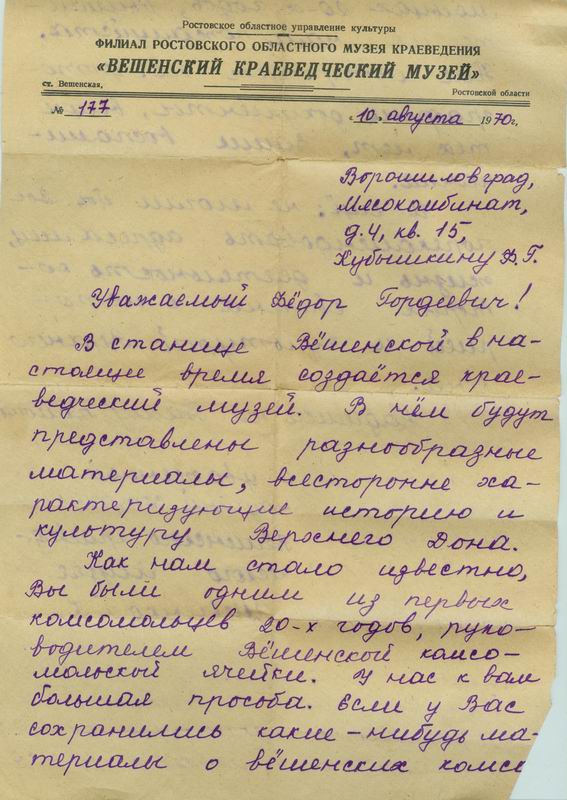 Ростовское областное управление культуры
ФИЛИАЛ РОСТОВСКОГО ОБЛАСТНОГО МУЗЕЯ КРАЕВЕДЕНИЯ
«ВЕШЕНСКИЙ КРАЕВЕДЧЕСКИЙ МУЗЕЙ»
ст. Вешенская,
Ростовской области
№ 177
10. августа 1970 г.
Ворошиловград,
Мясокомбинат,
д. 4, кв. 15,
Кубышкину Ф. Г.
Уважаемый Фёдор Гордеевич!
В станице Вёшенской в на-
стоящее время создаётся крае-
ведческий музей. В нём будут
представлены разнообразные
материалы, всесторонне ха-
рактеризующие историю и
культуру Верхнего Дона.
Как нам стало известно,
Вы были одним из первых
комсомольцев 20-х годов, руко-
водителем Вёшенской комсо-
мольской ячейки. У нас к вам
большая просьба. Если у Вас
сохранились какие-нибудь ма-
териалы о вёшенских комсо